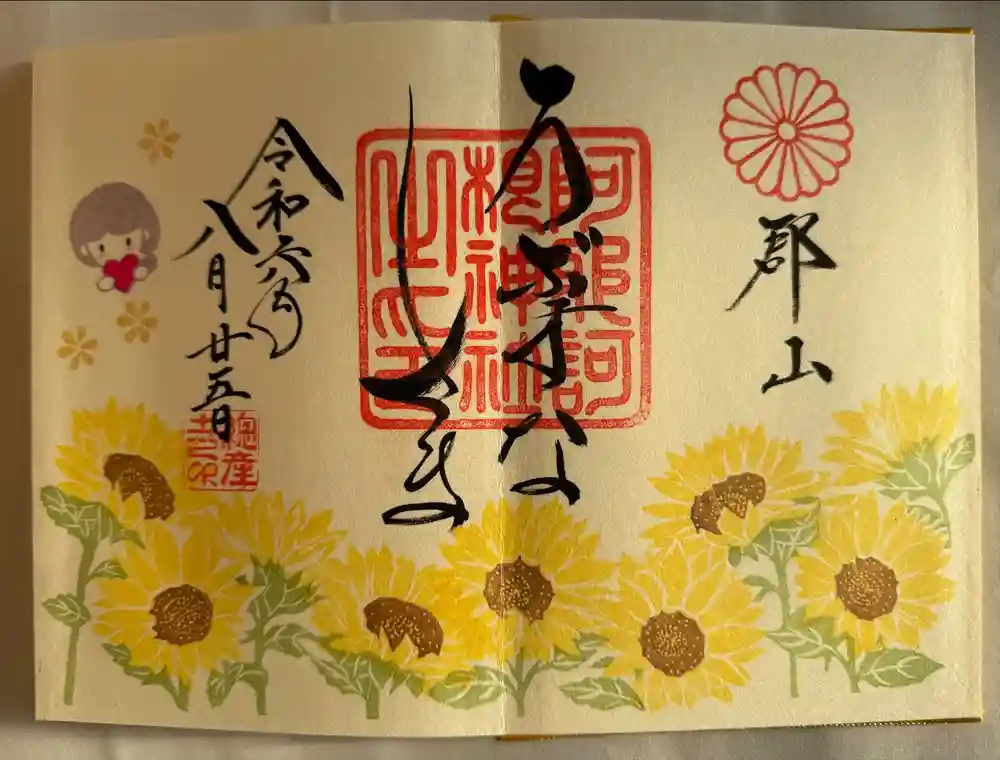 郡山
うぶすな
阿邪訶
根神社
之印
令和六年
八月廿五日
総産
土之印